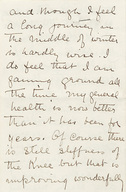 and though I feel
a long journey in
the middle of winter
is hardly wise. I
do feel that I am
gaining ground all
the time. My general
health is now better
than it has been for
years. Of course there
is still stiffness of
the knee but that is
improving wonderfully